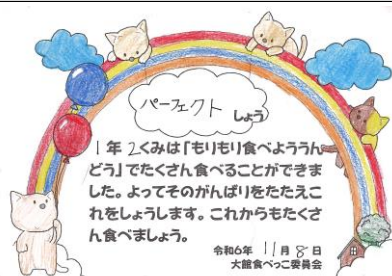 パーフェクト しょう
1年 2くみは「もりもり食べよううん
どう」でたくさん食べることができま
した。よってそのがんばりをたたえこ
れをしょうします。これからもたくさ
ん食べましょう。
令和6年 11月 8日
大館食べっこ委員会